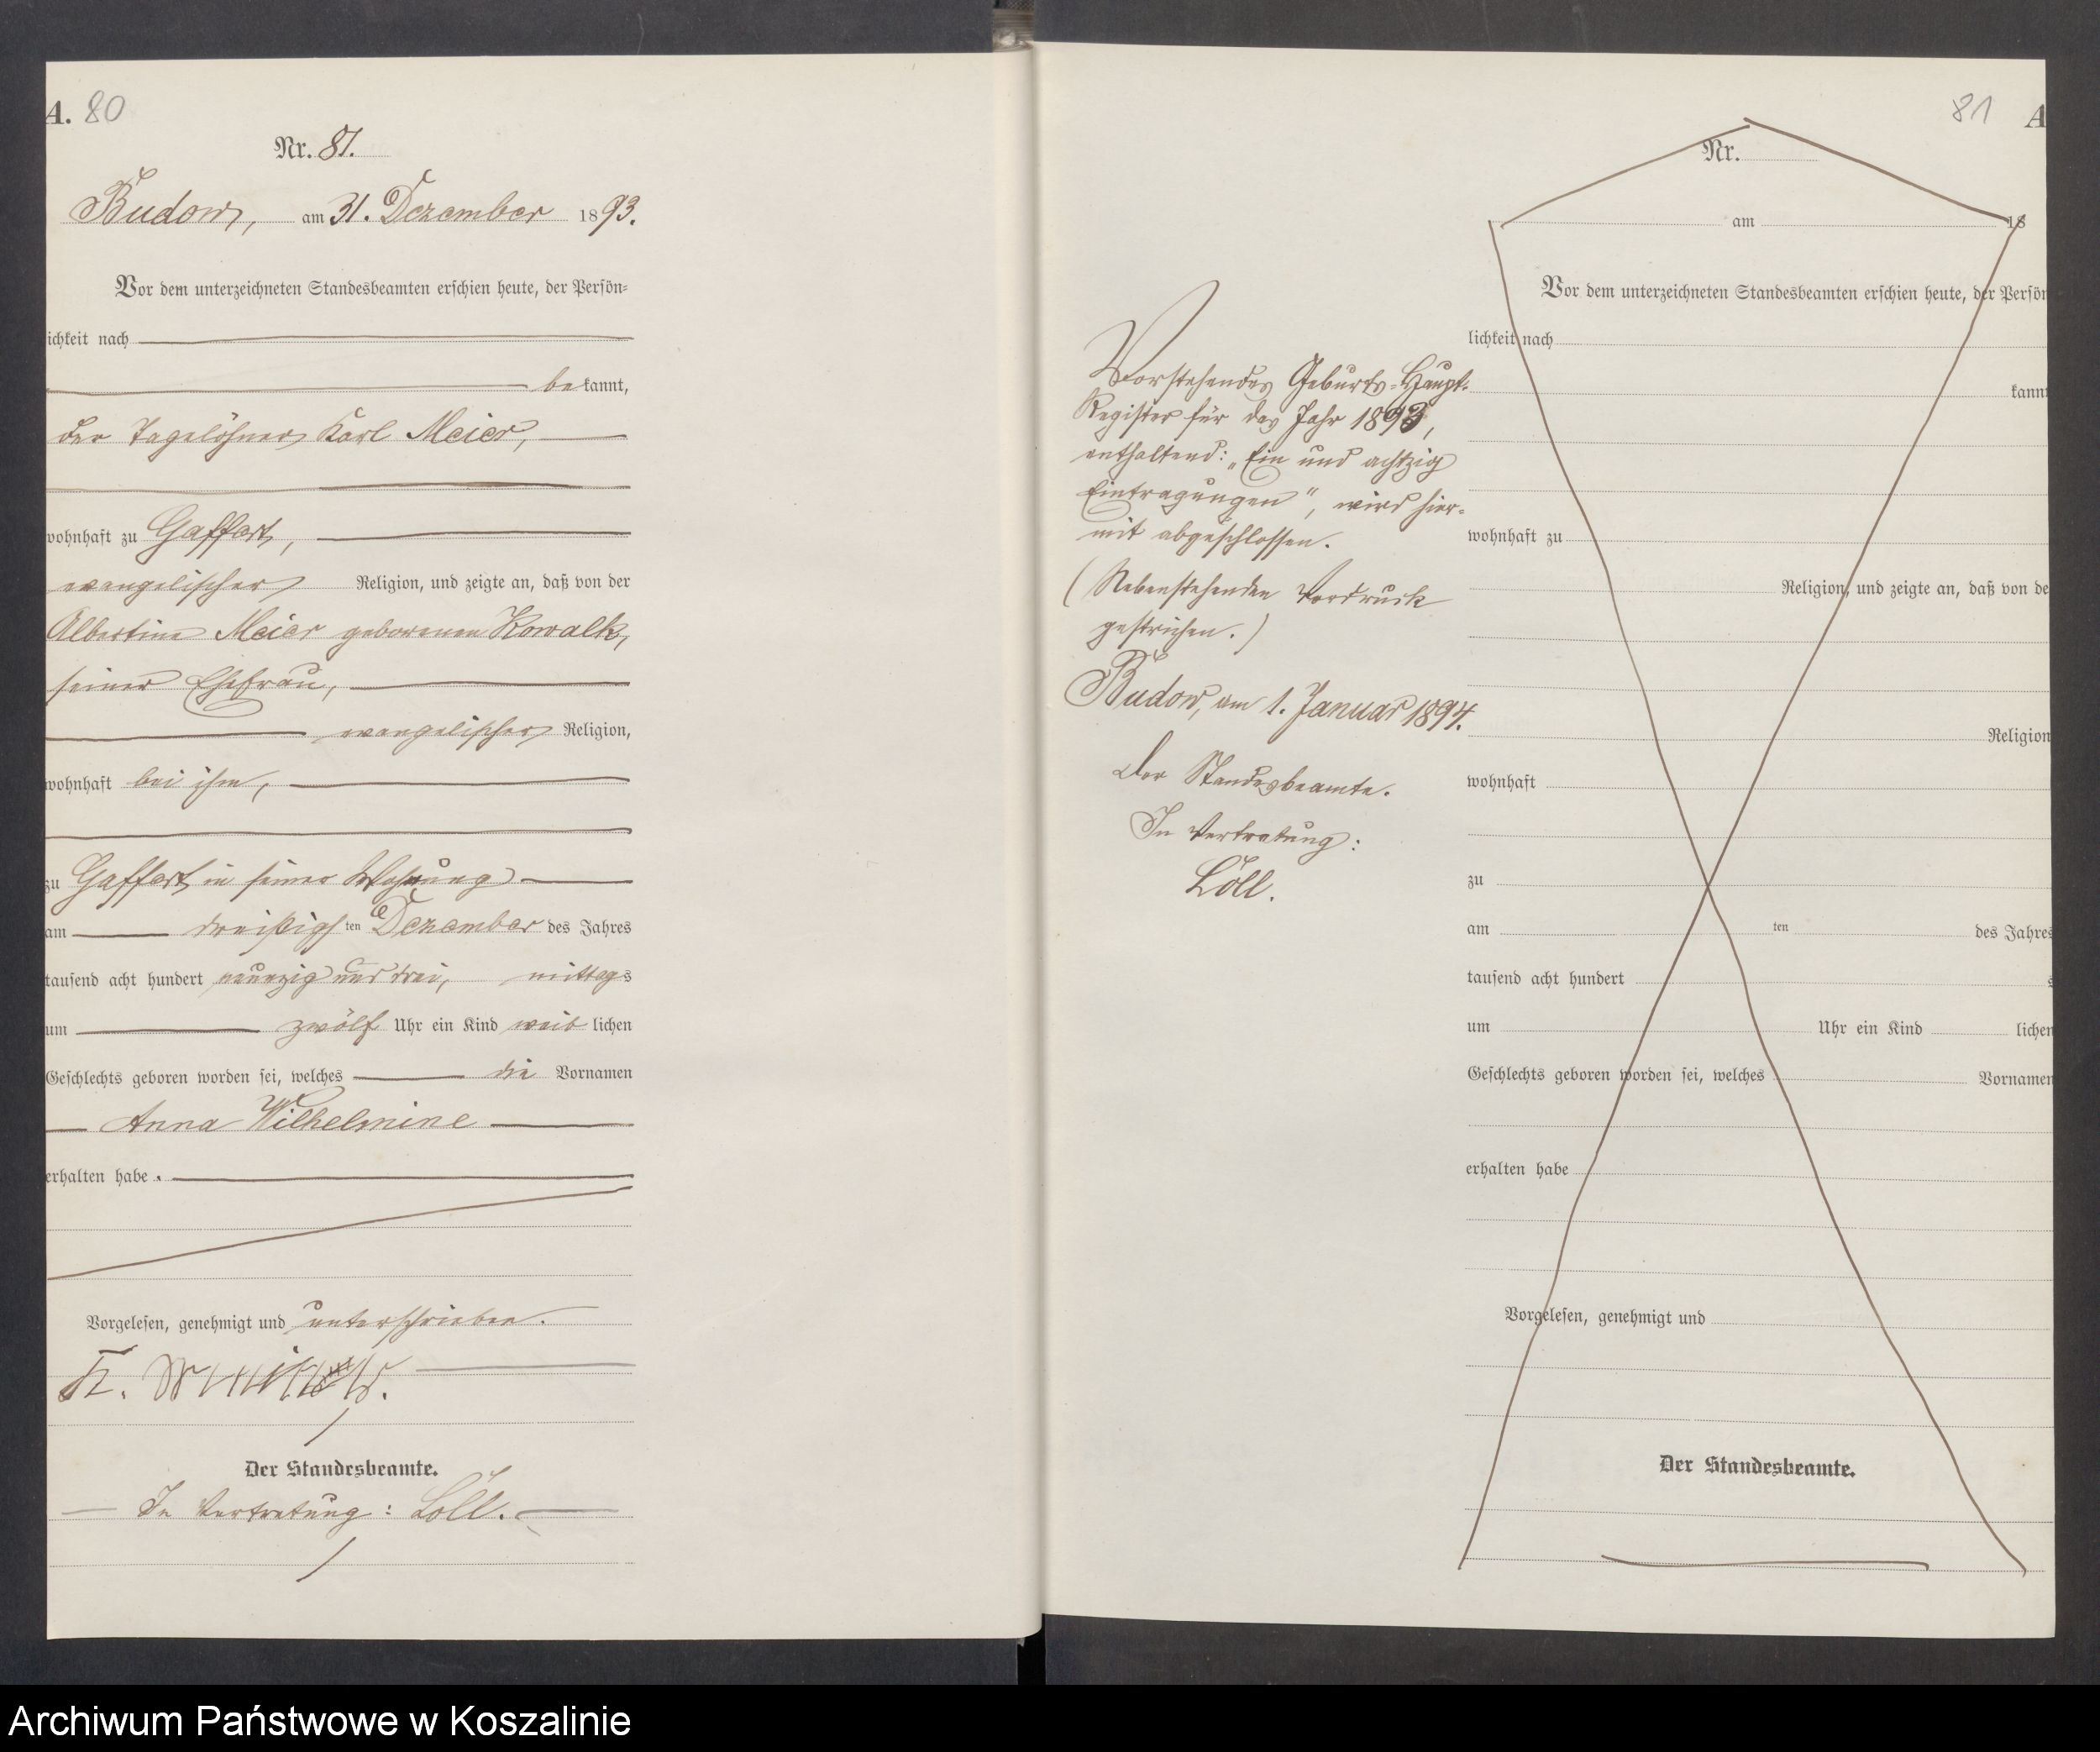 A. 80
Nr. 81.
Budow, am 31. Dezember 1893.
Vor dem unterzeichneten Standesbeamten erschien heute, der Persön=
lichkeit nach
be kannt,
der Tagelöhner Karl Meier,
wohnhaft zu Gaffert,
evangelischer Religion, und zeigte an, daß von der
Albertine Meier geborenen Kowalk,
seiner Ehefrau,
evangelischer Religion,
wohnhaft bei ihm,
zu Gaffert in seiner Wohnung
am dreißigsten Dezember des Jahres
tausend acht hundert neunzig und drei, mittags
um zwölf Uhr ein Kind weiblichen
Geschlechts geboren worden sei, welches die Vornamen
Anna Wilhelmine
erhalten habe.
Vorgelesen, genehmigt und unterschrieben.
Der Standesbeamte.
In Vertretung: Löll.
81 A
Nr.
am 18
Vor dem unterzeichneten Standesbeamten erschien heute, der Persön
lichkeit nach
kannt
wohnhaft zu
Religion, und zeigte an, daß von de
Religion
wohnhaft
zu
am ten des Jahres
tausend acht hundert s
um Uhr ein Kind lichen
Geschlechts geboren worden sei, welches Vornamen
erhalten habe
Vorgelesen, genehmigt und
Der Standesbeamte.
Vorstehendes Geburts=Haupt=
Register für das Jahr 1893,
enthaltend: „Ein und achtzig
Eintragungen", wird hier=
mit abgeschlossen.
(Nebenstehenden Vordruck
gestrichen.)
Budow, am 1. Januar 1894.
Der Standesbeamte.
In Vertretung:
Löll.
Archiwum Państwowe w Koszalinie